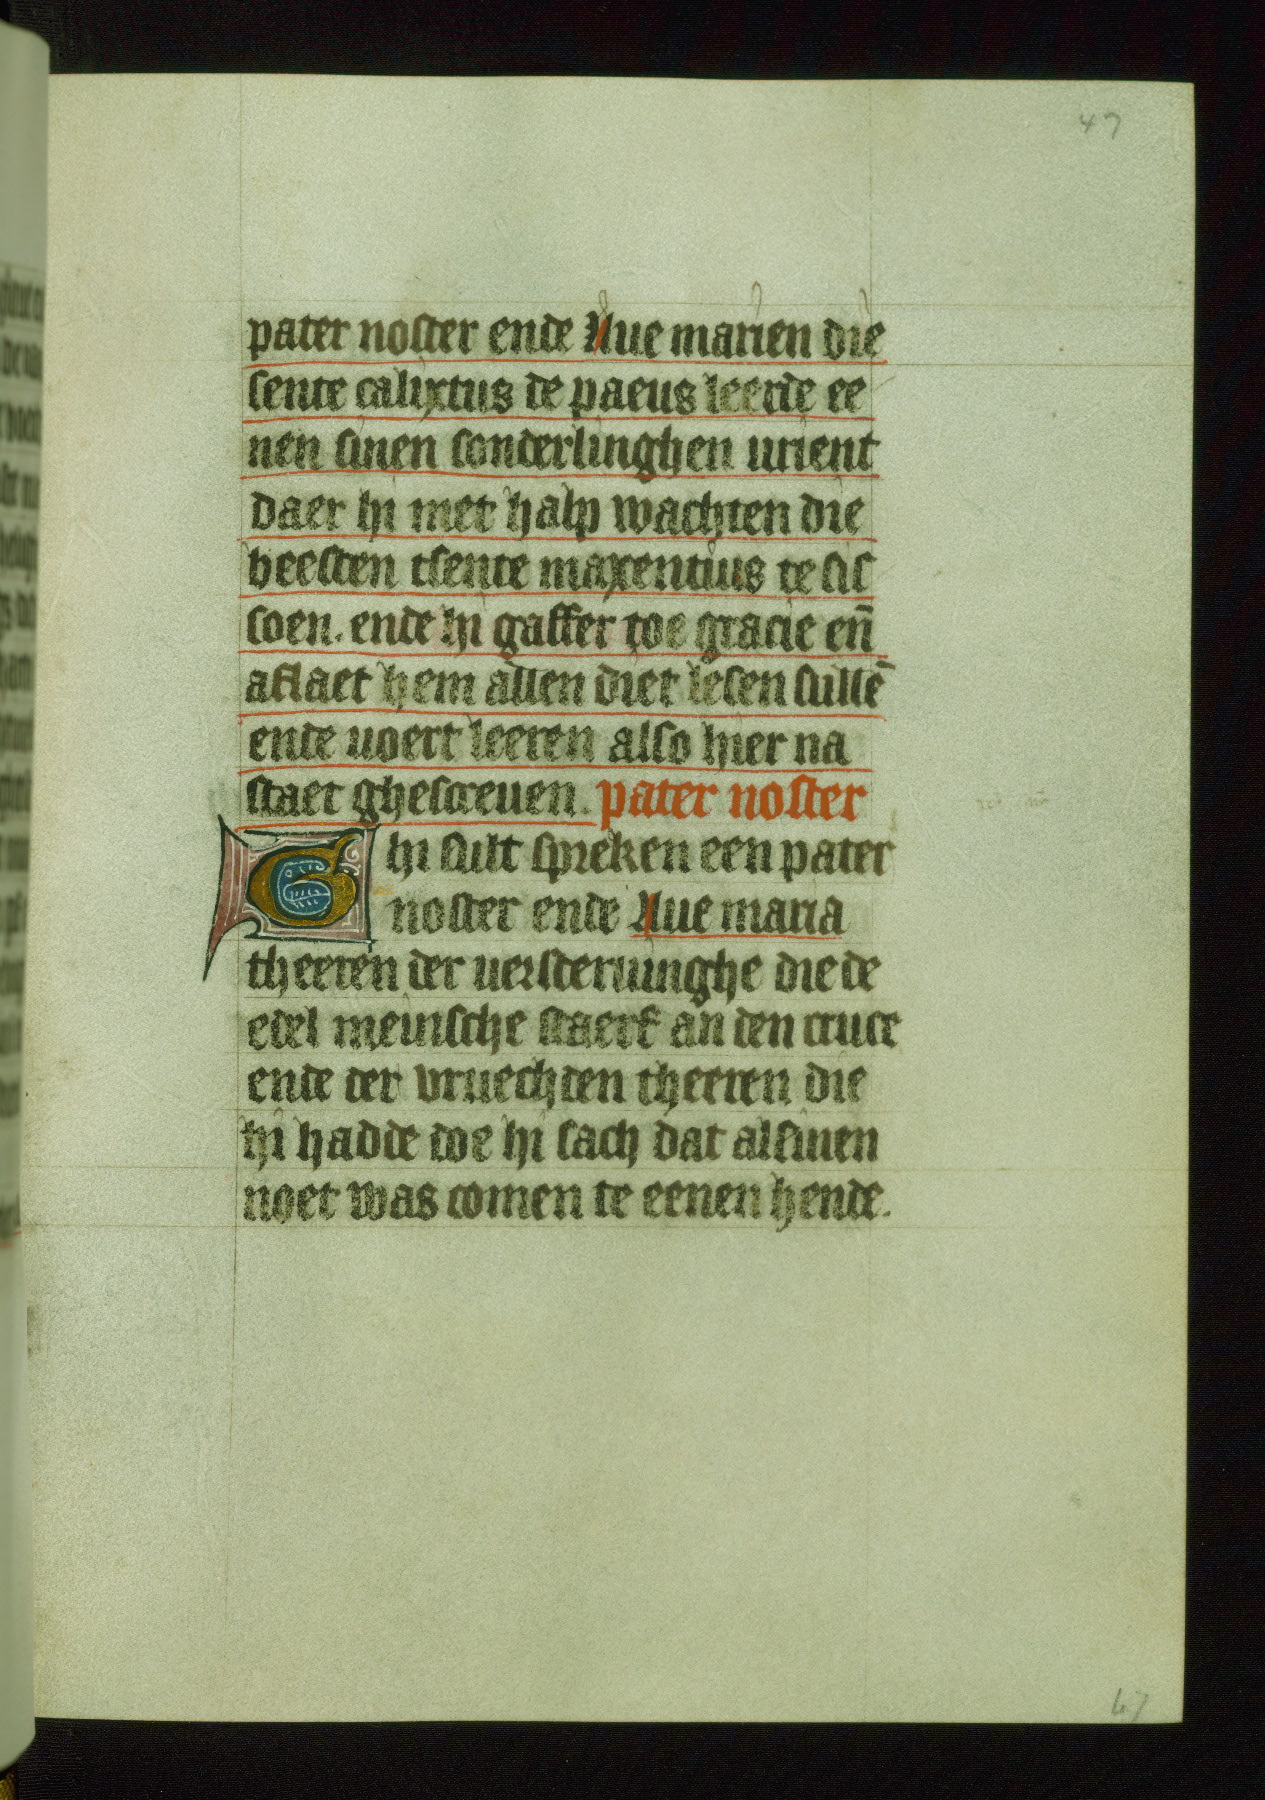 47
pater noster ende Aue marien die
sente calixtus de paeus leerde ee
nen sinen sonderlinghen urient
daer hi met halp wachten die
beesten tsente maxentius te sis
soen. ende hi gaffer toe gracie en̄
aflaet hem allen diet lesen sullē
ende uoert leeren also hier na
staet ghescreuen. pater noster
Ghi sult spreken een pater
noster ende Aue maria
theeren der uersteruinghe die de
edel meinsche staerf an den cruce
ende der vruechden theeren die
hi hadde doe hi sach dat al sinen
noet was comen te eenen hende.
47